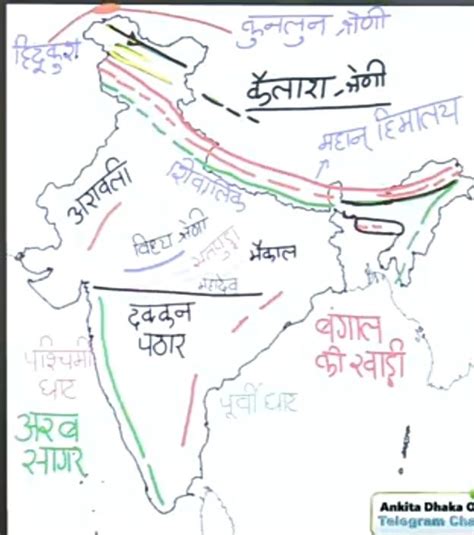 कुनलुन श्रेणी
हिंदूकुश
कैलाश श्रेणी
महान् हिमालय
शिवालिक
अरावली
विंध्य श्रेणी
सतपुड़ा
मैकाल
महादेव
दक्कन
पठार
बंगाल
की खाड़ी
पश्चिमी
घाट
पूर्वी घाट
अरब
सागर
Ankita Dhaka
Telegram